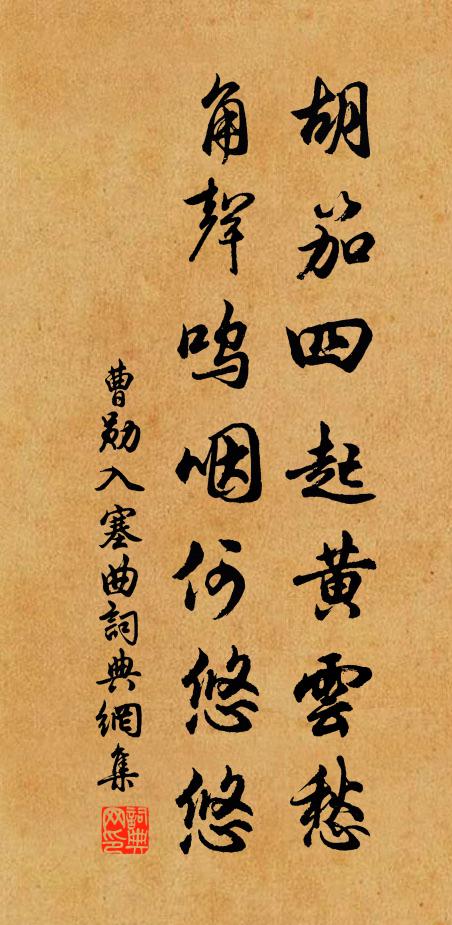 胡笳四起黄雲愁
角聲鳴咽何悠悠
曹勛入塞曲詞典網集
詞典网印